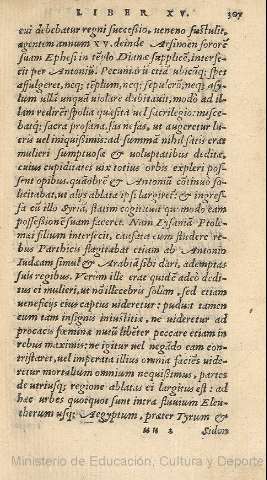 LIBER XV. 307
cui debebatur regni successio, ueneno sustulit,
agentem annum XV. deinde Arsinoen sororē
suam Ephesi in tēplo Dianæ supplicē, interfe-
cit per Antoniū. Pecuniarū etiā ubicūq; spes
affulgeret, neq; tēplum, neq; sepulcrū, neq; asy-
lum ullū unquā uiolare dubitauit, modò ad il-
lam rediret spolia quæsita uel sacrilegio: nusce-
batq; sacra profana, fas nefas, ut augeretur lu-
cris uel iniquissimis: ad summā nihil satis erat
mulieri sumptuosæ & uoluptatibus deditæ,
cuius cupiditates uix totius orbis expleri pos-
sent opibus. quāobrē & Antoniū cōtinuò so-
licitabat, ut alijs ablata ipsi largiret: & ingres-
sa cū illo Syriā, statim cogitauit quomodo eam
possessionē suam faceret. Nam Lysaniā Ptole-
mæi filium interfecit, causata eum studere re-
bus Parthicis flagitabat etiam ab Antonio
Iudæam simul & Arabiā sibi dari, ademptas
suis regibus. Verùm ille erat quidē adeò dedi-
tus ei mulieri, ut nō illecebris solùm, sed etiam
ueneficijs eius captus uideretur: puduit tamen
eum tam insignis iniustitiæ, ne uideretur ad
procacis fœminæ nutū libēter peccare etiam in
rebus maximis: ne igitur uel negādo eam con-
tristaret, uel imperata illius omnia faciēs uide-
retur mortalium omnium nequissimus, partes
de utriusq; regione ablatas ei largitus est: ad
hæc urbes quotquot sunt intra fluuium Eleu-
therum usq; Aegyptum, præter Tyrum &
Sidon
Ministerio de Educación, Cultura y Deporte